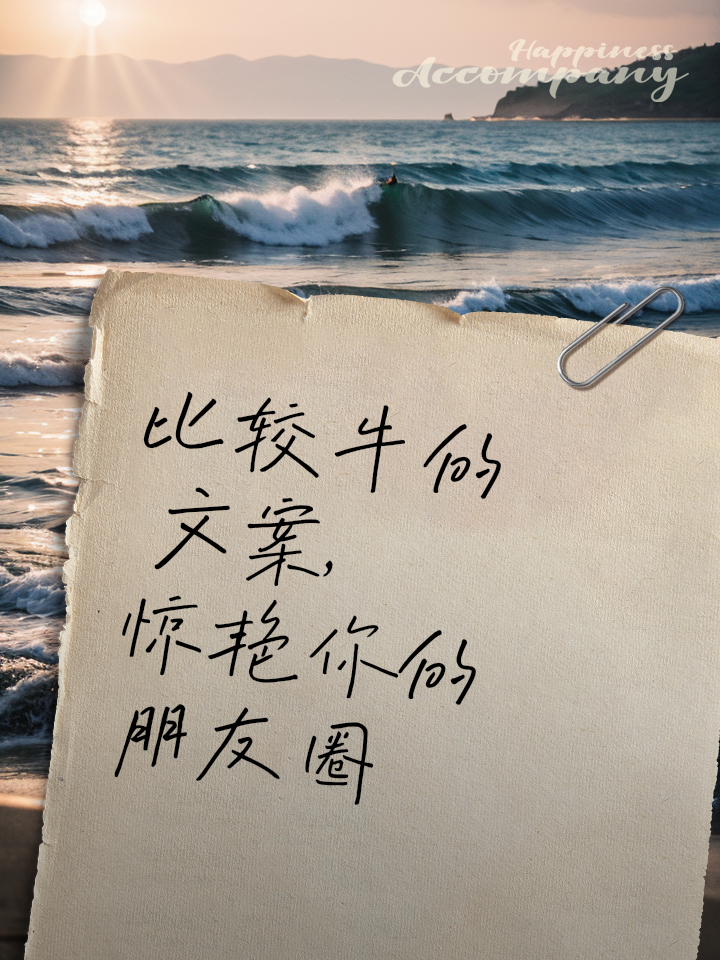 Happiness
Accompany
比较牛的
文案,
惊艳你的
朋友圈